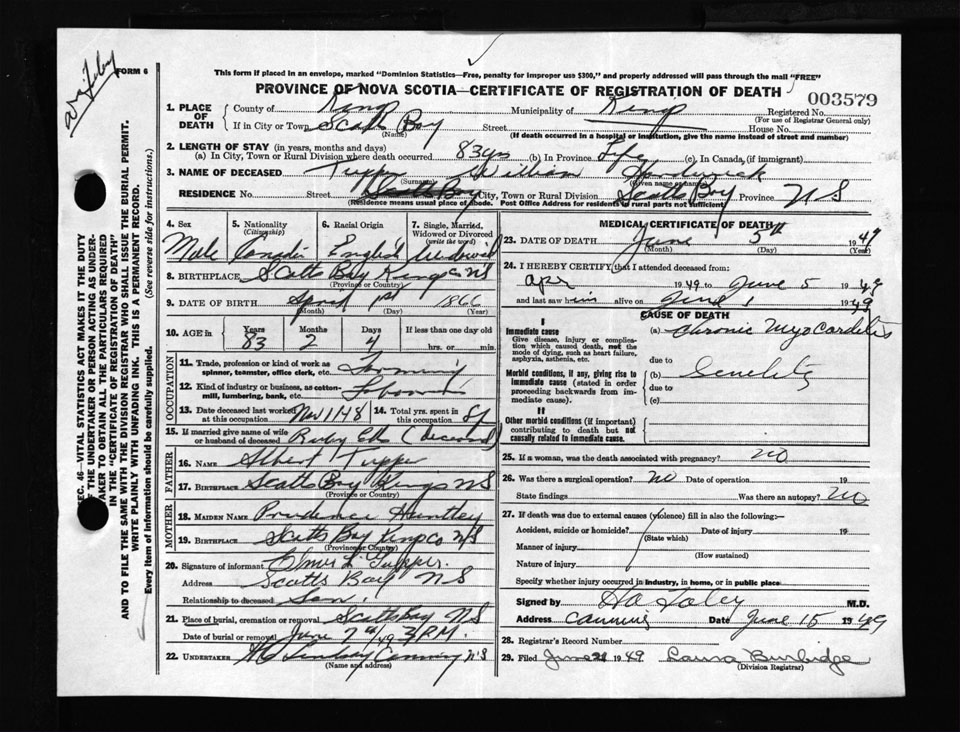 FORM 6
This form if placed in an envelope, marked "Dominion Statistics—Free, penalty for improper use $300," and properly addressed will pass through the mail "FREE"
PROVINCE OF NOVA SCOTIA—CERTIFICATE OF REGISTRATION OF DEATH
003579
1. PLACE OF DEATH County of Kings Municipality of Kings Registered No.
(For use of Registrar General only)
If in City or Town Scotts Bay Street House No.
(Name) (If death occurred in a hospital or institution, give name instead of street and number)
2. LENGTH OF STAY (in years, months and days)
(a) In City, Town or Rural Division where death occurred 83 yrs (b) In Province Life (c) In Canada, (if immigrant)
3. NAME OF DECEASED Tupper William
(Surname) (Given name or names)
RESIDENCE No. Street Scotts Bay City, Town or Rural Division Scotts Bay Province N S
(Residence means usual place of abode. Post Office Address for residents of rural parts not sufficient)
4. Sex 5. Nationality (Citizenship) 6. Racial Origin 7. Single, Married, Widowed or Divorced (write the word)
Male Canadian English Widowed
8. BIRTHPLACE Scotts Bay Kings Co NS
(Province or Country)
9. DATE OF BIRTH April 1st 1866
(Month) (Day) (Year)
10. AGE in Years Months Days If less than one day old
83 2 4 hrs. or min.
OCCUPATION
11. Trade, profession or kind of work as spinner, teamster, office clerk, etc. Farming
12. Kind of industry or business, as cotton-mill, lumbering, bank, etc.
13. Date deceased last worked at this occupation Nov 1948 14. Total yrs. spent in this occupation
15. If married give name of wife or husband of deceased Ruby (deceased)
FATHER
16. NAME Albert Tupper
17. BIRTHPLACE Scotts Bay Kings NS
(Province or Country)
MOTHER
18. MAIDEN NAME Prudence Huntley
19. BIRTHPLACE Scotts Bay Kings Co N/S
(Province or Country)
20. Signature of informant Elmer L Tupper.
Address Scotts Bay N S
Relationship to deceased Son.
21. Place of burial, cremation or removal Scotts Bay NS
Date of burial or removal June 7th/49 3 P.M.
22. UNDERTAKER Lindsay Canning N'S
(Name and address)
MEDICAL CERTIFICATE OF DEATH
23. DATE OF DEATH June 5th 1949
(Month) (Day) (Year)
24. I HEREBY CERTIFY, that I attended deceased from:
Apr 1949 to June 5 1949
and last saw him alive on June 1 1949
CAUSE OF DEATH
I
Immediate cause (a) Chronic Myocarditis
Give disease, injury or complication which caused death, not the mode of dying, such as heart failure, asphyxia, asthenia, etc.
due to
Morbid conditions, if any, giving rise to immediate cause (stated in order proceeding backwards from immediate cause).
(b) Senility
due to
(c)
II
Other morbid conditions (if important) contributing to death but not causally related to immediate cause.
25. If a woman, was the death associated with pregnancy? NO
26. Was there a surgical operation? NO Date of operation 19
State findings Was there an autopsy? NO
27. If death was due to external causes (violence) fill in also the following:—
Accident, suicide or homicide? Date of injury 19
(State which)
Manner of injury
(How sustained)
Nature of injury
Specify whether injury occurred in industry, in home, or in public place
Signed by M.D.
Address Canning Date June 15 1949
28. Registrar's Record Number
29. Filed June 1949 Laura Burbidge
(Division Registrar)
SEC. 46—VITAL STATISTICS ACT MAKES IT THE DUTY
OF THE UNDERTAKER OR PERSON ACTING AS UNDER-
TAKER TO OBTAIN ALL THE PARTICULARS REQUIRED
IN THE "CERTIFICATE OF REGISTRATION OF DEATH"
AND TO FILE THE SAME WITH THE DIVISION REGISTRAR WHO SHALL ISSUE THE BURIAL PERMIT.
WRITE PLAINLY WITH UNFADING INK. THIS IS A PERMANENT RECORD.
Every item of information should be carefully supplied. (See reverse side for instructions.)